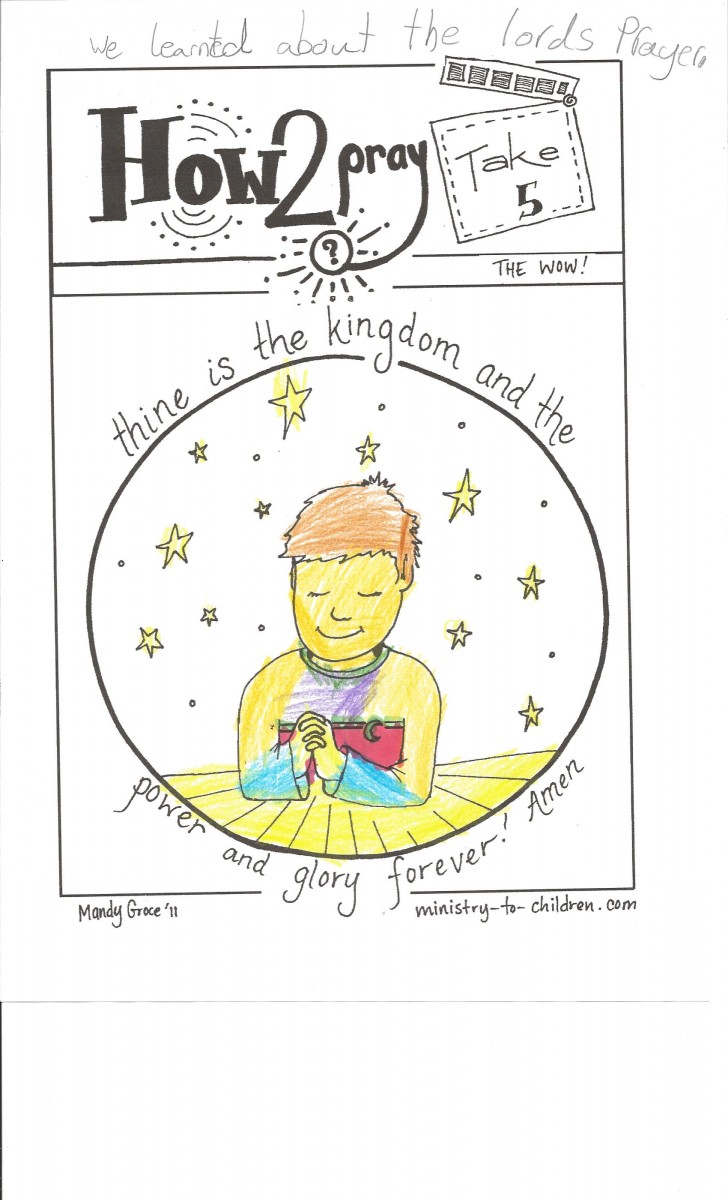 we learntd about the lords Prayer.
How2pray
?
Take
5
THE WOW!
thine is the kingdom and the
power and glory forever! Amen
Mandy Groce '11
ministry-to-children.com